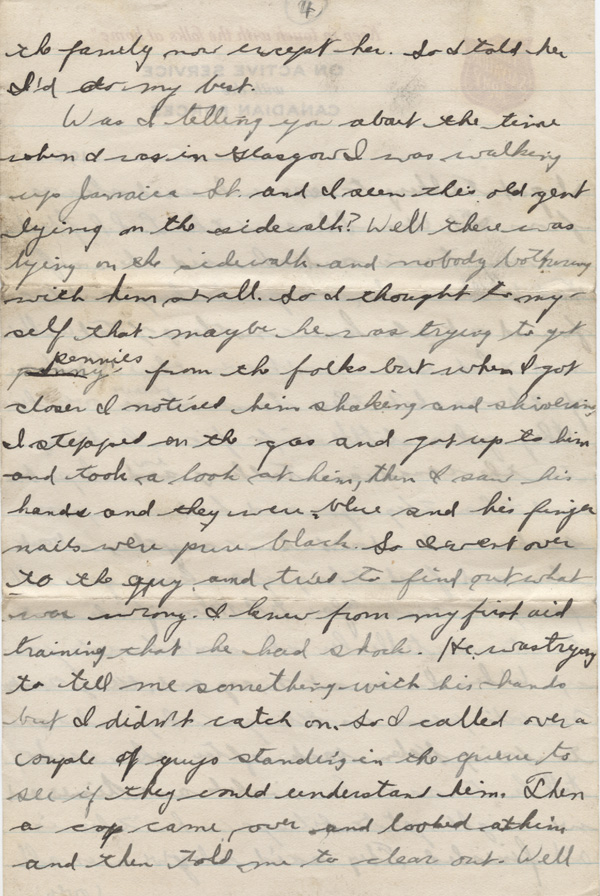 4
the family now except her. So I told her
I'd do my best.
Was I telling you about the time
when I was in Glasgow I was walking
up Jamaica St. and I seen this old gent
lying on the sidewalk? Well there was
lying on the sidewalk and nobody bothering
with him at all. So I thought to my-
self that maybe he was trying to get
pennies from the folks but when I got
closer I notised him shaking and shivering
I stepped on the gas and got up to him
and took a look at him, then I saw his
hands and they were blue and his finger
nails were pure black. So I went over
to the guy and tried to find out what
was wrong. I knew from my first aid
training that he had shock. He was trying
to tell me something with his hands
but I didn't catch on. So I called over a
couple of guys standing in the queue to
see if they could understand him. Then
a cop came over and looked at him
and then told me to clear out. Well
ON ACTIVE SERVICE
CANADIAN